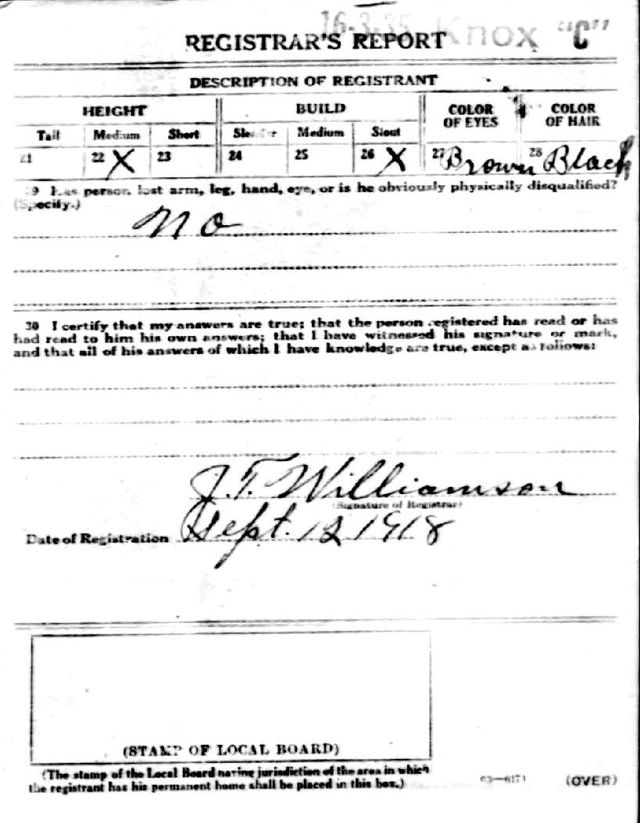 16-3-35 Knox "C"
REGISTRAR'S REPORT
DESCRIPTION OF REGISTRANT
HEIGHT BUILD COLOR OF EYES COLOR OF HAIR
Tall Medium Short Slender Medium Stout
21 22 X 23 24 25 26 X 27 Brown 28 Black
29 Has person lost arm, leg, hand, eye, or is he obviously physically disqualified?
(Specify.)
No
30 I certify that my answers are true; that the person registered has read or has
had read to him his own answers; that I have witnessed his signature or mark,
and that all of his answers of which I have knowledge are true, except as follows:
J.T. Williamson
(Signature of Registrar)
Date of Registration Sept. 12 1918
(STAMP OF LOCAL BOARD)
(The stamp of the Local Board having jurisdiction of the area in which
the registrant has his permanent home shall be placed in this box.)
03—6171 (OVER)